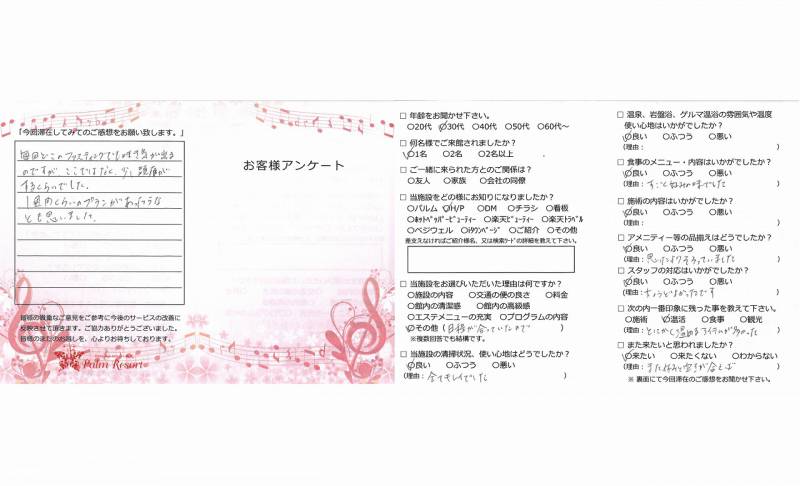 「今回滞在してみてのご感想をお願い致します。」
毎回どこのファスティングでも吐き気が出る
のですが、ここではなく、少し頭痛が
するくらいでした。
1週間くらいのプランがあったらな
とも思いました。
皆様の貴重なご意見をご参考に今後のサービスの改善に
反映させて頂きます。ご協力ありがとうございました。
皆様のまたのお越しを、心よりお待ちしております。
Palm Resort
お客様アンケート
□ 年齢をお聞かせ下さい。
○20代 ○30代 ○40代 ○50代 ○60代～
□ 何名様でご来館されましたか?
○1名 ○2名 ○2名以上
□ ご一緒に来られた方とのご関係は?
○友人 ○家族 ○会社の同僚
□ 当施設をどの様にお知りになりましたか?
○パルム ○H/P ○DM ○チラシ ○看板
○ホットペッパービューティー ○楽天ビューティー ○楽天トラベル
○ベジウェル ○iタウンページ ○ご紹介 ○その他
差支えなければご紹介様名、又は検索ワードの詳細を教えて下さい。
□ 当施設をお選びいただいた理由は何ですか?
○施設の内容 ○交通の便の良さ ○料金
○館内の清潔感 ○館内の高級感
○エステメニューの充実 ○プログラムの内容
○その他 ( 日程が合っていたので )
※複数回答でも結構です。
□ 当施設の清掃状況、使い心地はどうでしたか?
○良い ○ふつう ○悪い
(理由: 全てキレイでした )
□ 温泉、岩盤浴、ゲルマ温浴の雰囲気や温度
使い心地はいかがでしたか?
○良い ○ふつう ○悪い
(理由: )
□ 食事のメニュー・内容はいかがでしたか?
○良い ○ふつう ○悪い
(理由: すごく好みの味でした )
□ 施術の内容はいかがでしたか?
○良い ○ふつう ○悪い
(理由: )
□ アメニティー等の品揃えはどうでしたか?
○良い ○ふつう ○悪い
(理由: 思ったよりそろっていました )
□ スタッフの対応はいかがでしたか?
○良い ○ふつう ○悪い
(理由: ちょうどよかったです )
□ 次の内一番印象に残った事を教えて下さい。
○施術 ○温活 ○食事 ○観光
(理由: とにかく温める が多かった )
□ また来たいと思われましたか?
○来たい ○来たくない ○わからない
(理由: また休みと が合えば )
※ 裏面にて今回滞在のご感想をお聞かせ下さい。